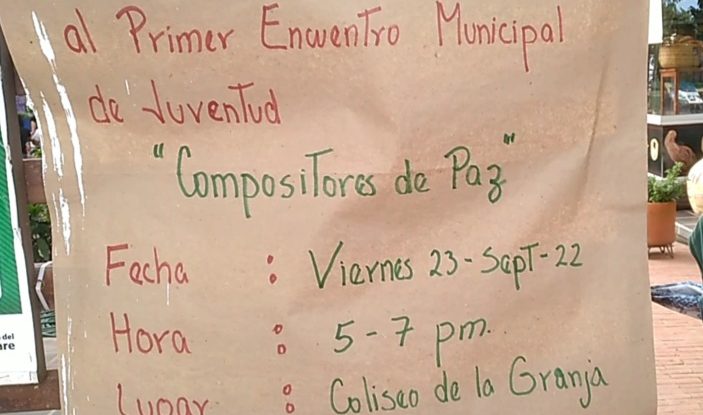 al Primer Encuentro Municipal
de Juventud
"Compositores de Paz"
Fecha : Viernes 23-Sept-22
Hora : 5-7 pm.
Lugar : Coliseo de la Granja
del